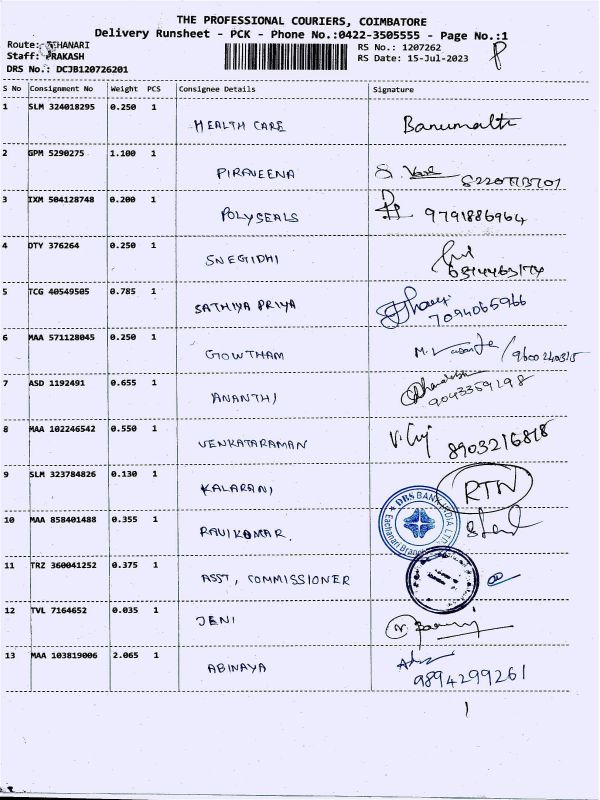 THE PROFESSIONAL COURIERS, COIMBATORE
Delivery Runsheet - PCK - Phone No.:0422-3505555 - Page No.:1
Route: EHANARI
RS No.: 1207262
Staff: PRAKASH
RS Date: 15-Jul-2023
DRS No.: DCJB120726201
S No Consignment No Weight PCS Consignee Details Signature
1 SLM 324018295 0.250 1 HEALTH CARE Banumathi
2 GPM 5290275 1.100 1 PIRAVEENA
3 IXM 504128748 0.200 1 POLYSEALS 9791886964
4 DTY 376264 0.250 1 SNEGIDHI
5 TCG 40549505 0.785 1 SATHIYA PRIYA 7094065966
6 MAA 571128045 0.250 1 GOWTHAM 9600240315
7 ASD 1192491 0.655 1 ANANTHI 9043359198
8 MAA 102246542 0.550 1 VENKATARAMAN
9 SLM 323784826 0.130 1 KALARANI RTN
10 MAA 858401488 0.355 1 RAVIKUMAR. DBS BANK INDIA LTD. Eachanari Branch
11 TRZ 360041252 0.375 1 ASST, COMMISSIONER
12 TVL 7164652 0.035 1 JENI
13 MAA 103819006 2.065 1 ABINAYA 9894299261